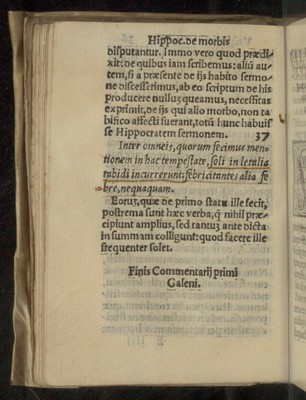 Hippoc. de morbis
disputantur. Immo vero quod prædi-
xit: de quibus iam scribemus: aliũ au-
tem, si a præsente de ijs habito sermo-
ne discesserimus, ab eo scriptum de his
producere nulluʒ queamus, necessitas
exprimit, de ijs qui alio morbo, non ta
bifico affecti fuerant, totũ hunc habuis
se Hippocratem sermonem. 37
Inter omneis, quorum fecimus men-
tionem in hac tempestate, soli in letalia
tabidi incurrerunt: febricitantes alia fe
bre, nequaquam.
Eoruʒ, quæ de primo statu ille fecit,
postrema sunt hæc verba, q̃ nihil præ-
cipiunt amplius, sed tantuʒ ante dicta
in summam colligunt: quod facere ille
frequenter solet.
Finis Commentarij primi
Galeni.